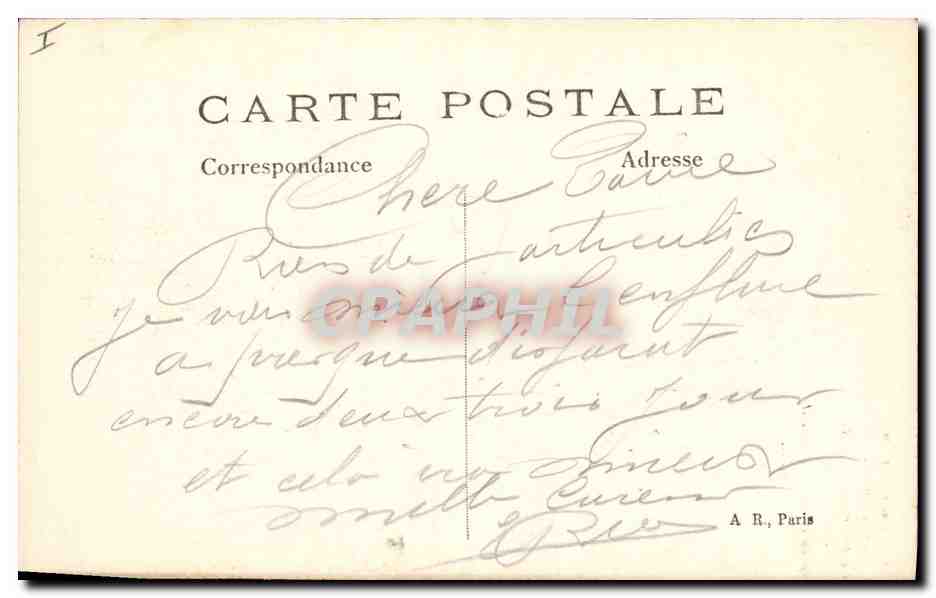 I
CARTE POSTALE
Correspondance
Adresse
Chere
Rien de particulier
je vais mieux l'enflure
CPAPHIL
a presque disparut
encore deux trois jour
et cela ira mieux
mille
A R., Paris